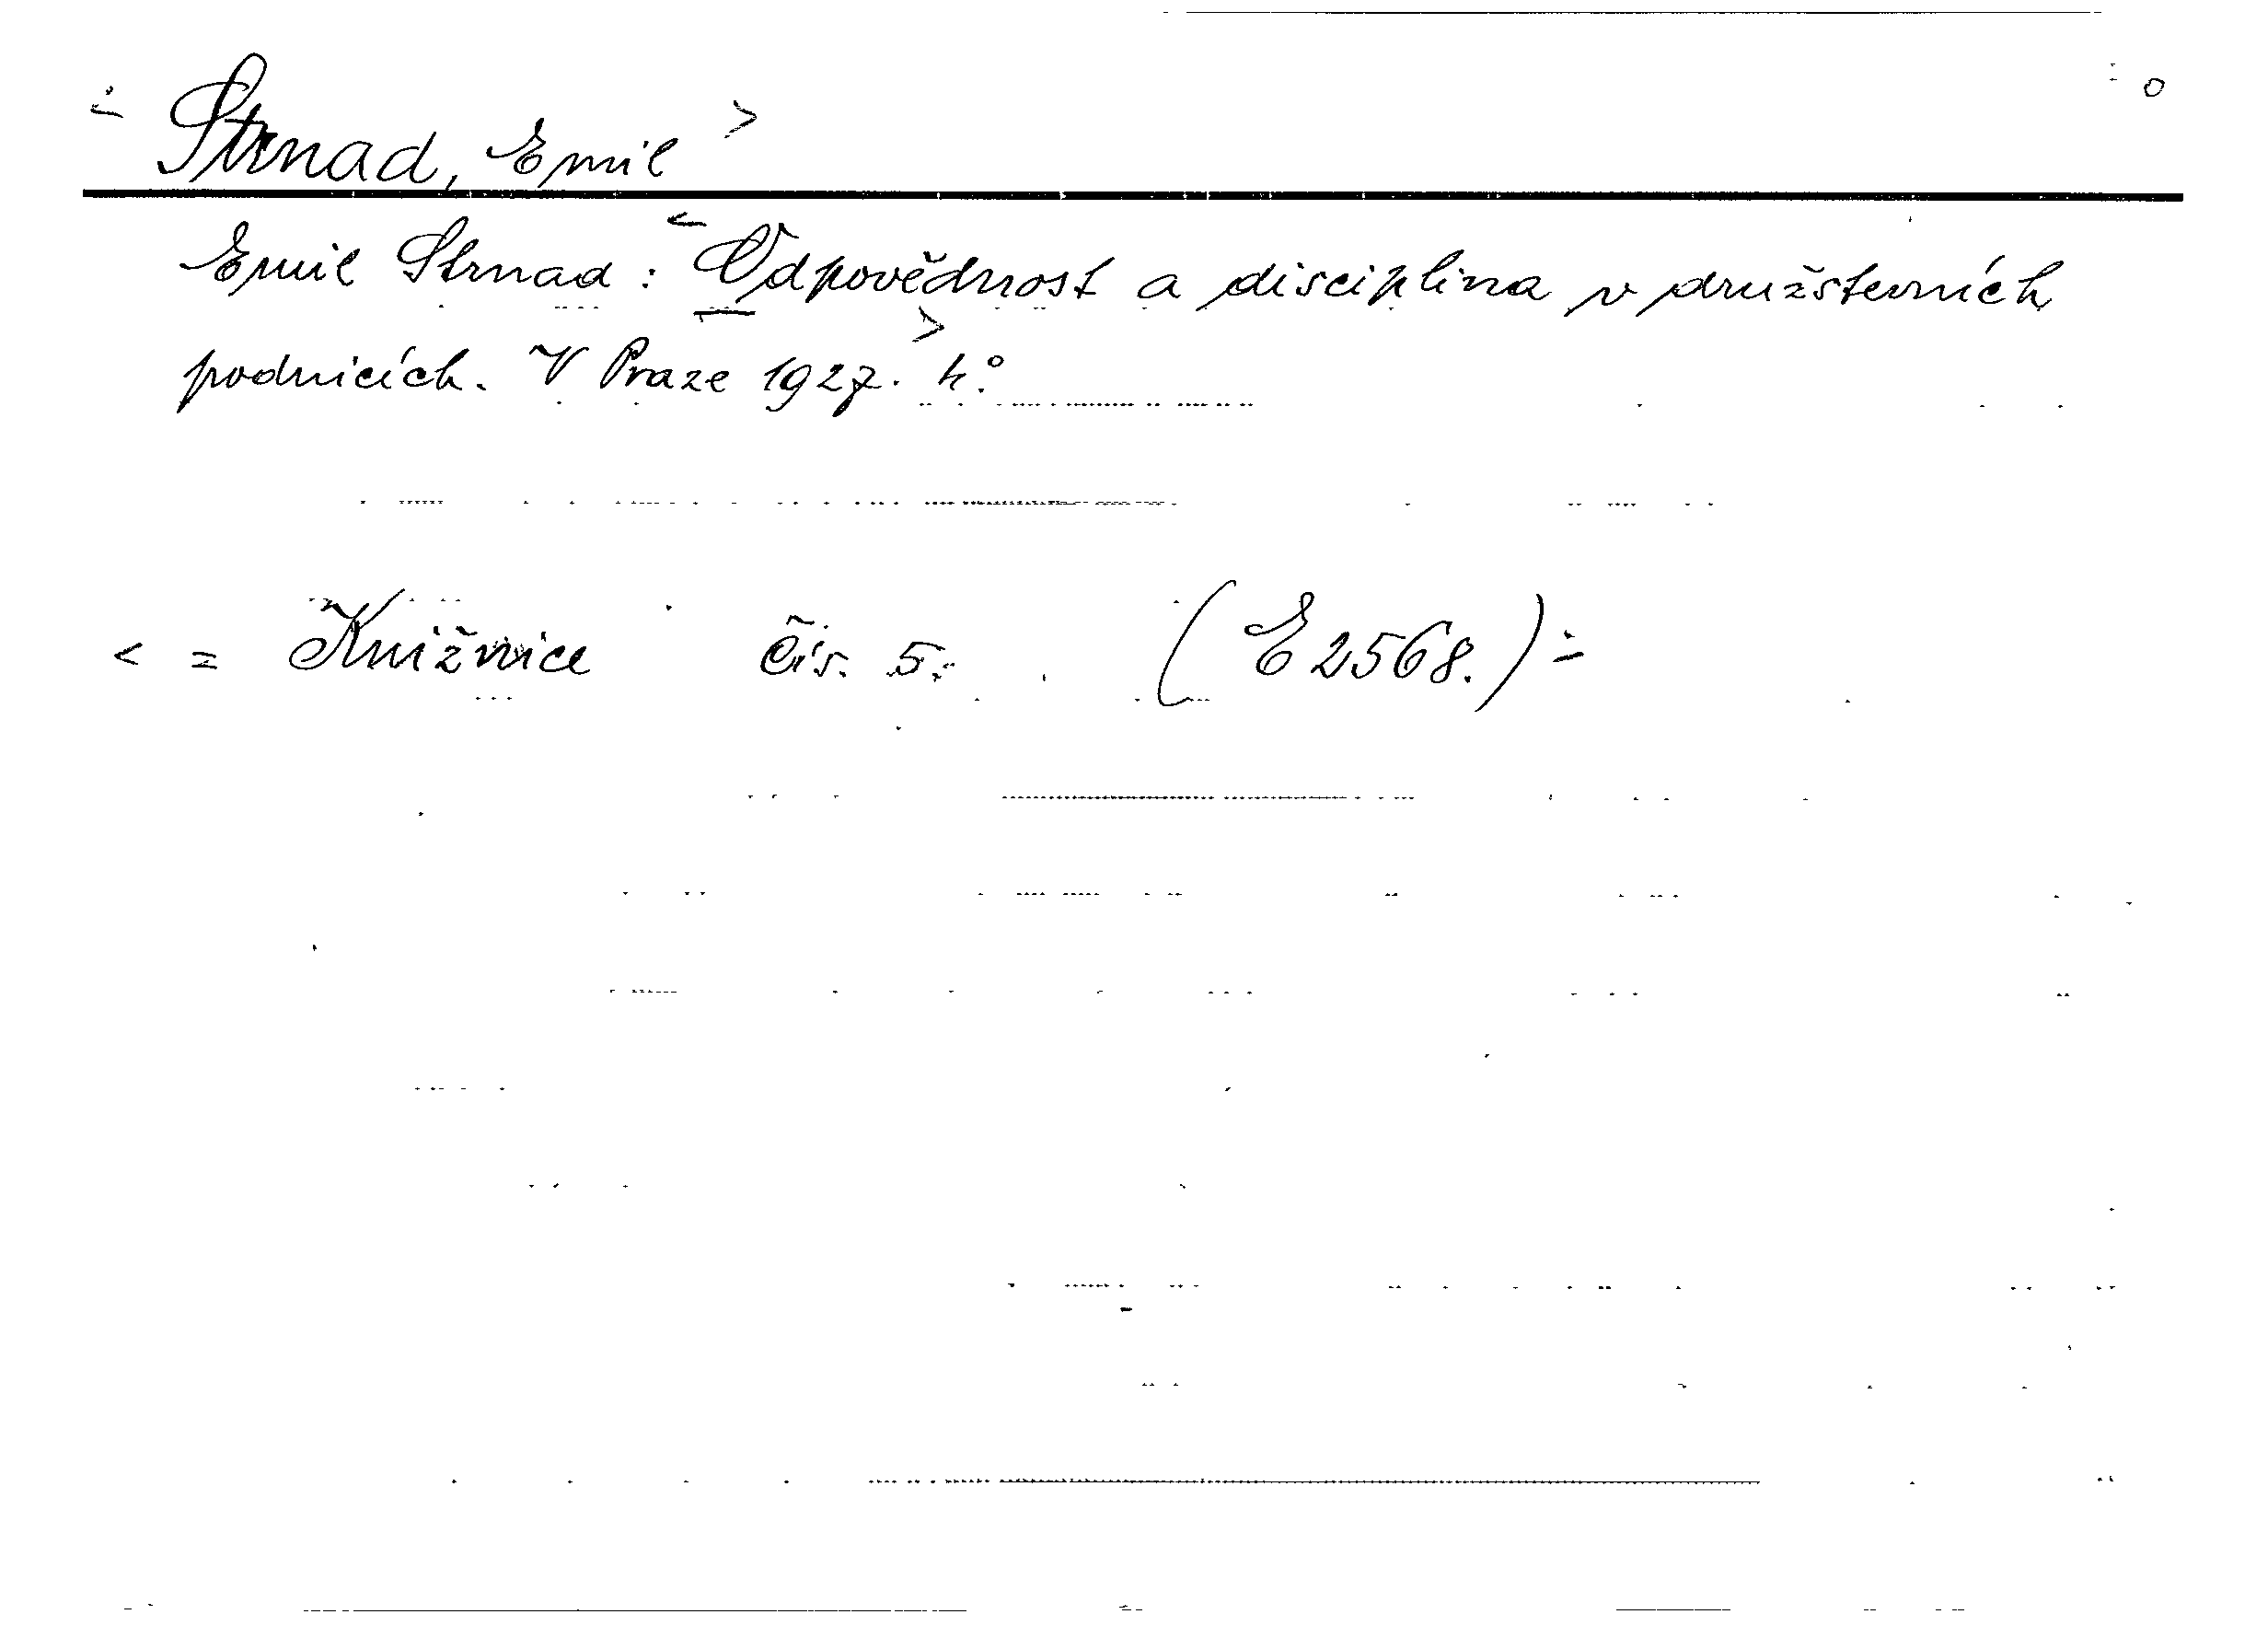 Strnad, Emil
Emil Strnad: Odpovědnost a disciplina v družstevních
podnicích. V Praze 1927. 4°.
< = Knižnice čís. 5. (E 2568.) =